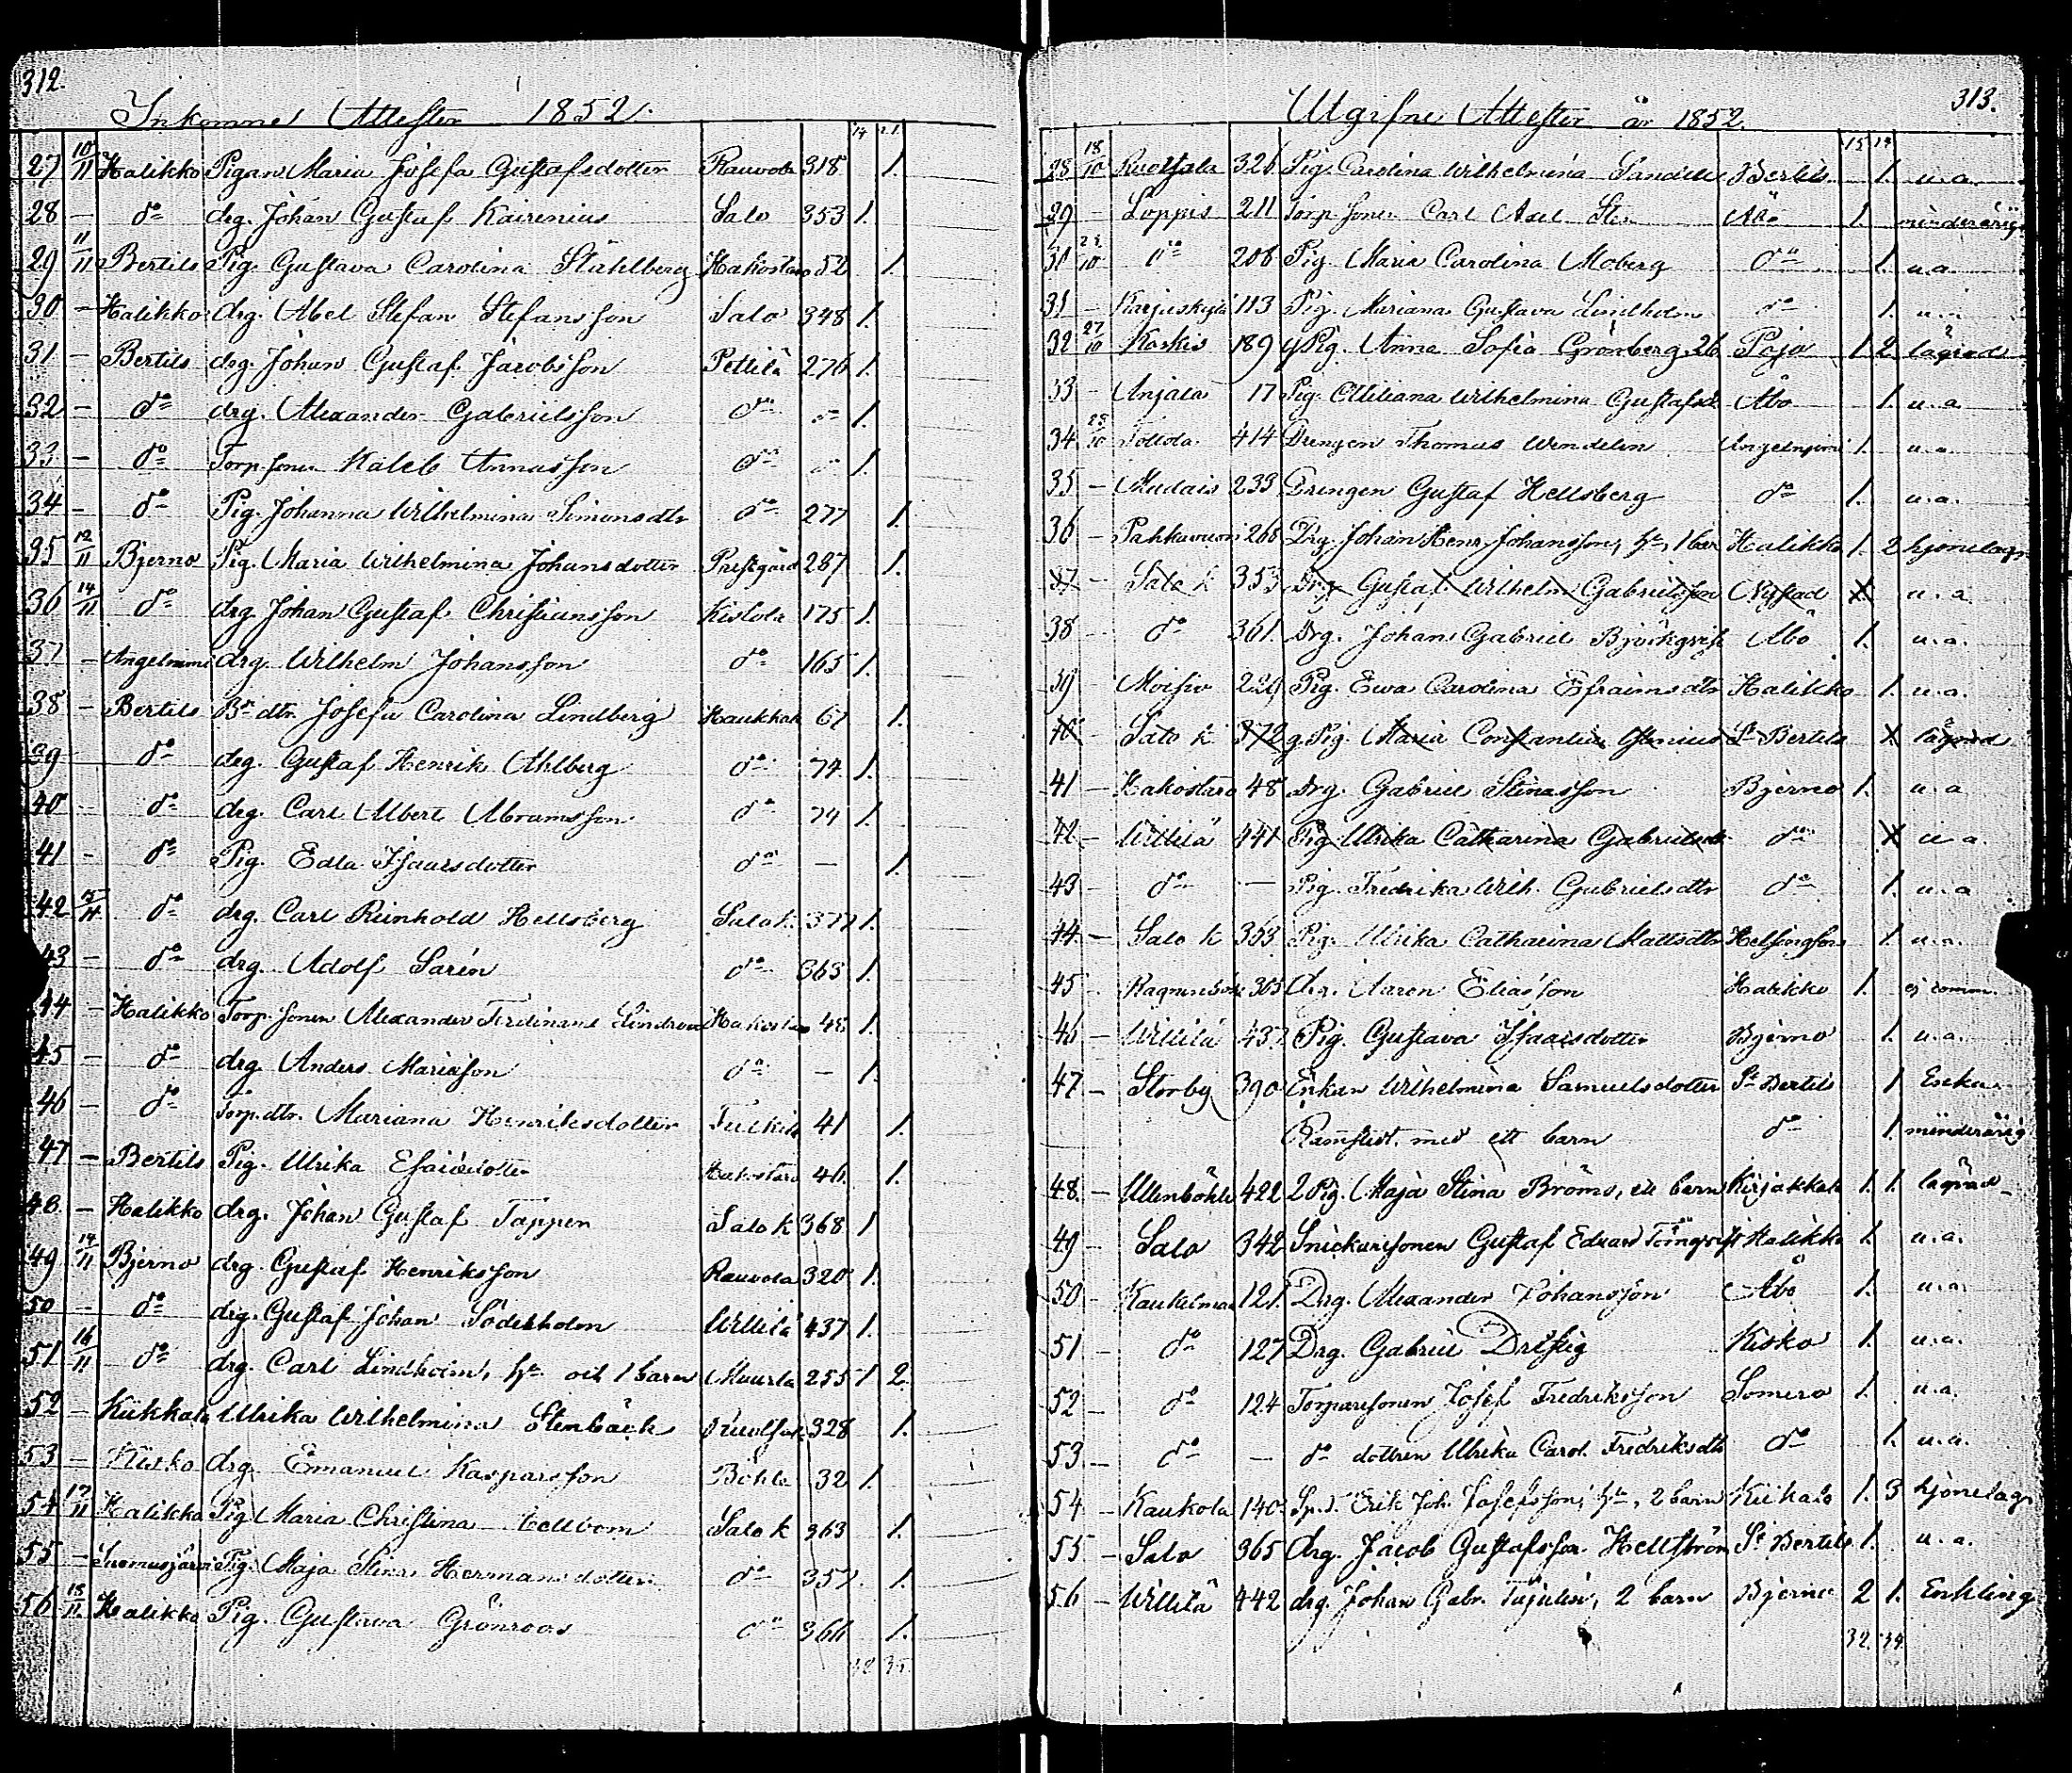 312.
Inkomne Attester 1852.
14 21
27 10/11 Halikko Pigan Maria Josefa Gustafsdotter Rauvola 318 1.
28 — do drg. Johan Gustaf Kairenius Salo 353 1.
29 11/11 Bertils Pig. Gustava Carolina Ståhlberg Hakostaro 52 1.
30 — Halikko drg. Abel Stefan Stefansson Salo 348 1.
31 — Bertils drg. Johan Gustaf Jacobsson Pettilä 276 1.
32 — do drg. Alexander Gabrielsson do 1.
33 — do Torp.sonen Kaleb Annasson do 1.
34 — do Pig. Johanna Wilhelmina Simonsdtr do 277 1.
35 12/11 Bjerno Pig. Maria Wilhelmina Johansdotter Prestgård 287 1.
36 14/11 do drg Johan Gustaf Christiansson Kistola 175 1.
37 — Angelniemi drg. Wilhelm Johansson do 165 1.
38 — Bertils dtr Josefa Carolina Lindberg Haukkala 67 1.
39 do drg. Gustaf Henrik Ahlberg do 74 1.
40 — do drg. Carl Albert Abramsson do 74 1.
41 — do Pig. Edla Isaacsdotter do — 1.
42 15/11 do drg. Carl Reinhold Hellsberg Salo k. 377 1.
43 — do drg. Adolf Sarin do 363 1.
44 — Halikko Torp.sonen Alexander Ferdinand Lindroos Hakostaro 48 1.
45 — do drg Anders Mariasson do — 1.
46 — do Torp.dtr. Mariana Henriksdotter 41 1.
47 — Bertils Pig. Ulrika Esaiedotter Hakostaro 46 1.
48 — Halikko drg. Johan Gustaf Tappen Salo k 368 1
49 14/11 Bjerno drg. Gustaf Henriksson Rauvola 320 1.
50 — do drg. Gustaf Johan Söderholm Uskilä 437 1.
51 16/11 do drg. Carl Lindholm, hu och 1 barn Muurla 255 1 2.
52 — Kiikkala Ulrika Wilhelmina Stenbäck Ruotsala 328 1.
53 — Kisko drg. Emanuel Kasparsson Böhle 32 1.
54 17/11 Halikko Pig Maria Christina Hellbom Salo k 363 1.
55 — Suomusjärvi Pig. Maja Stina Hermansdotter do 357 1.
56 18/11 Halikko Pig. Gustava Grönroos do 366 1.
35.
313.
Utgifne Attester år 1852.
15 14
28 18/10 Ruotsala 326 Pig. Carolina Wilhelmina Sandell Bertils 1. u.a.
29 — Loppis 211 Torp.sonen Carl Axel Sten Åbo 1. minderårig
30 25/10 do 208 Pig. Maria Carolina Moberg do 1. u.a.
31 — Karjaskylä 113 Pig. Mariana Gustava Lindholm do 1. u.a.
32 27/10 Koskis 189 Pig. Anna Sofia Grönberg. 2b. Pojo 1. 2. lägrad
33 — Anjala 17 Pig. Wilhelmina Gustafsd. Åbo 1. u.a
34. 28/10 Tottola 414 Drengen Thomas Wendelin Angelniemi 1. u.a.
35 — Madais 233 Drengen Gustaf Hellsberg do 1. u.a.
36 — Pahkavuori 268 Drg. Johan Henr. Johansson, hu, 1 barn Halikko 1. 2 hjonelagr
37 — Salo k 353 Drg Gustaf Wilhelm Gabrielsson Nystad 1 u.a
38 — do 361. Drg. Johan Gabriel Björkqvist Åbo 1. u.a.
39 Moisio 229 Pig. Ewa Carolina Efraimsdtr Halikko 1. u.a.
40 — Salo k 372 g.Pig. Maria Constantia St Bertils 1 lägrad
41 — Hakostaro 48 Drg. Gabriel Stinasson Bjerno 1. u.a
42 — Uskilä 441 Pig Ulrika Catharina Gabrielsdr do 1 u a.
43 — do — Pig. Fredrika Wilh. Gabrielsdtr do 1. u.a
44 — Salo k 353 Pig. Ulrika Catharina Mattsdtr Helsingfors 1 u.a.
45 365 Dr. Aaron Eliasson Halikko 1. ej comm.
46 — Uskilä 437 Pig. Gustava Isaacsdotter Bjerno 1. u.a.
47 — Storby 390 Enkan Wilhelmina Samuelsdotter St Bertils 1 Enka
Ramstedt, med ett barn do 1. minderårig
48 — Ullenböhle 422 2 Pig. Maja Stina Broms, ett barn Kirjakkala 1. 1. lägrad
49 — Salo 342 Snickaresonen Gustaf Edvard Törnqvist Halikko 1. u.a.
50 — Kaukelmaa 121. Drg. Alexander Johansson Åbo 1. u.a.
51 — do 127 Drg. Gabriel Dristig Kisko 1. u.a.
52 — do 124 Torparesonen Josef Fredriksson Somero 1. u.a.
53. — do — do dottren Ulrika Carol. Fredriksdtr do 1. u.a.
54 — Kaukola 140. Erik Joh. Josefsson, hu, 2 barn Kiikala 1. 3 hjonelag
55 — Salo 365 drg. Jacob Gustafsson Hellström St Bertils 1. u.a.
56 — Uskilä 442 drg. Johan Gabr. 2 barn Bjerno 2 1. Enkling
32. 34.